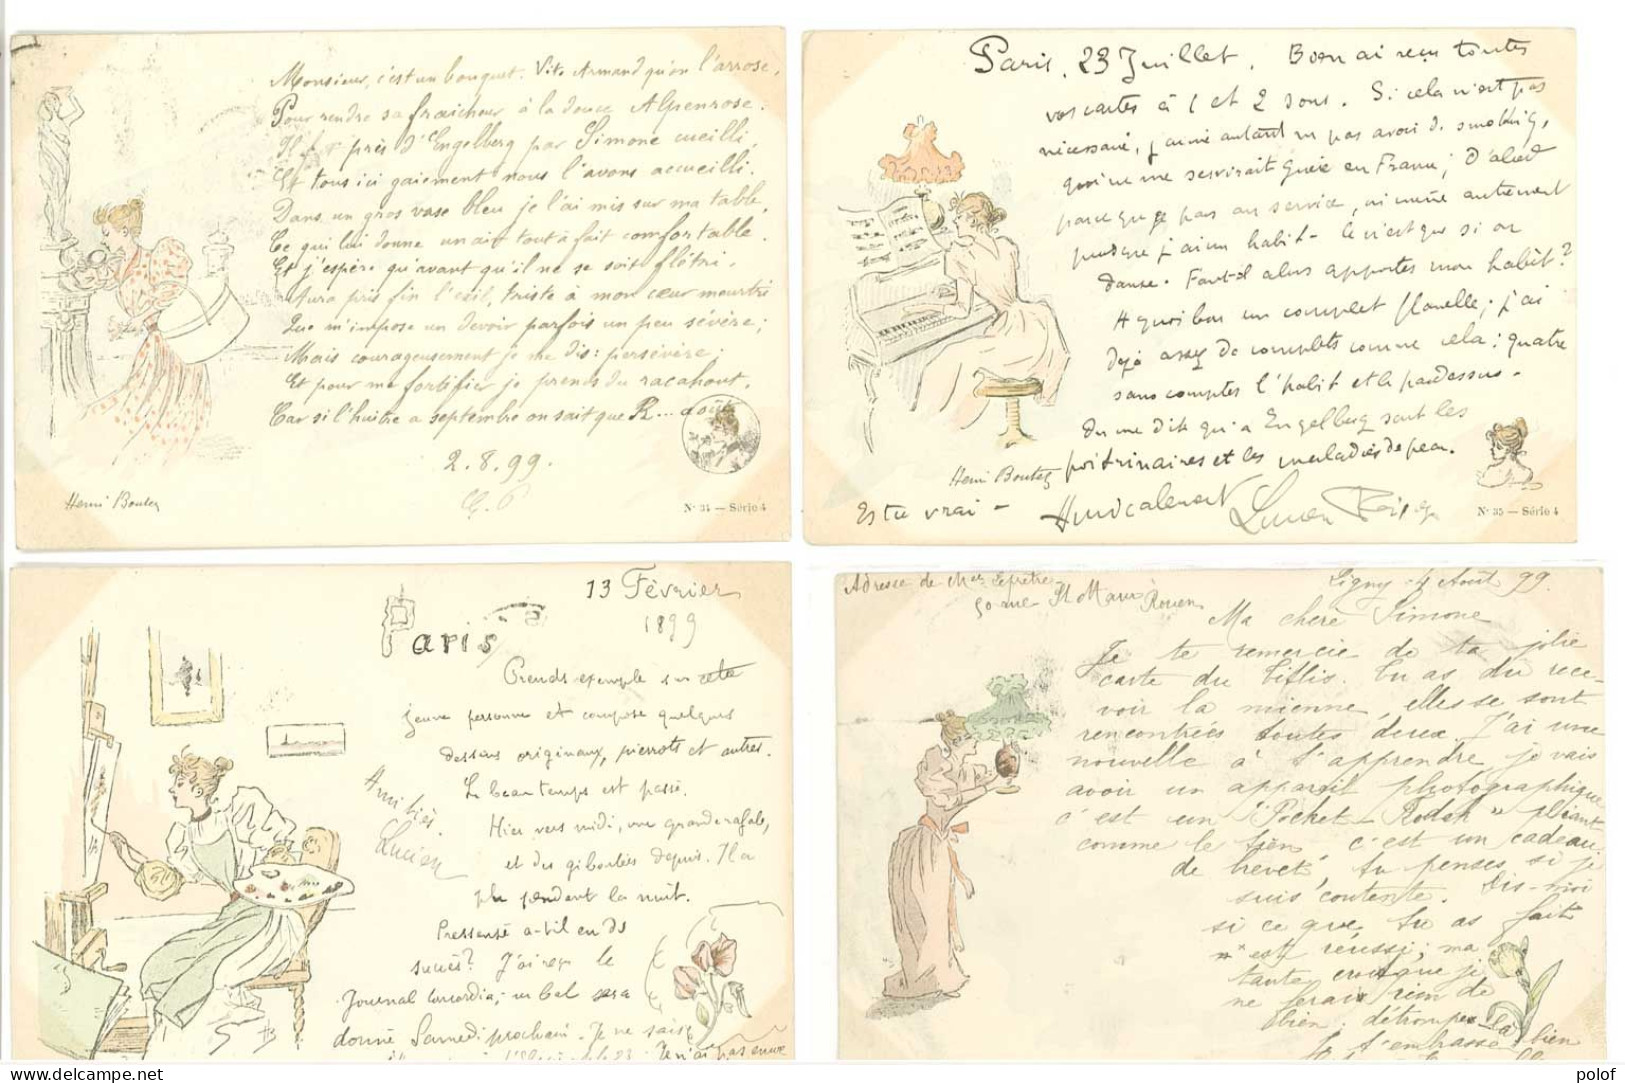 Monsieur, c'est un bouquet. Vite Armand qu'on l'arrose,
Pour rendre sa fraicheur à la douce Alpenrose.
Il f près d'Engelberg par Simone cueilli,
Et tous ici gaiement nous l'avons accueilli.
Dans un gros vase bleu je l'ai mis sur ma table,
Ce qui lui donne un air tout à fait comfortable.
Et j'espère qu'avant qu'il ne se soit flétri,
Aura pris fin l'exil, triste à mon cœur meurtri
Que m'impose un devoir parfois un peu sévère;
Mais courageusement je me dis: persévère;
Et pour me fortifier je prends du racahout,
Car si l'huitre a septembre on sait que R... août
2.8.99.
G. P
Henri Boutet
N° 34 — Série 4
Paris, 23 Juillet. Bien ai reçu toutes
vos cartes à 1 et 2 sous. Si cela n'est pas
nécessaire, j'aime autant ne pas avoir de smoking,
qui ne me servirait guère en France; D'abord
parce que je pas au service, ni même autrement
puisque j'ai un habit - Ce n'est que si on
danse. Faut-il alors apporter mon habit?
A quoi bon un complet flanelle; j'ai
déjà assez de complets comme cela: quatre
sans compter l'habit et le pardessus -
On me dit qu'a Engelberg sont les
poitrinaires et les maladies de peau.
Est ce vrai -
Amicalement Lucien
Henri Boutet
N° 35 — Série 4
13 Février
1899
Paris
Prends exemple sur cette
jeune personne et compose quelques
dessins originaux, pierrots et autres.
Le beau temps est passé.
Hier vers midi, une grande rafale,
et des giboulées depuis. Il a
plu pendant la nuit.
Pressensé a-t-il eu du
succès? J'ai reçu le
Journal Concordia; un bal sera
donné Samedi prochain. Je ne sais
Je n'ai pas encore
Amitiés.
Lucien
Adresse de Mer Lepretre
50 rue St Maur Rouen
Ligny 4 Août 99.
Ma chère Simone
Je te remercie de ta jolie
carte du Titlis. Tu as du rece-
voir la mienne, elles se sont
rencontrées toutes deux. J'ai une
nouvelle à t'apprendre, je vais
avoir un appareil photographique
c'est un "Pocket-Kodak" pliant
comme le tien c'est un cadeau
de brevet, tu penses si je
suis contente. Dis-moi
si ce que tu as fait
est réussi; ma
tante croit que je
ne ferai rien de
bien. détrompe-la
Je t'embrasse bien
polof